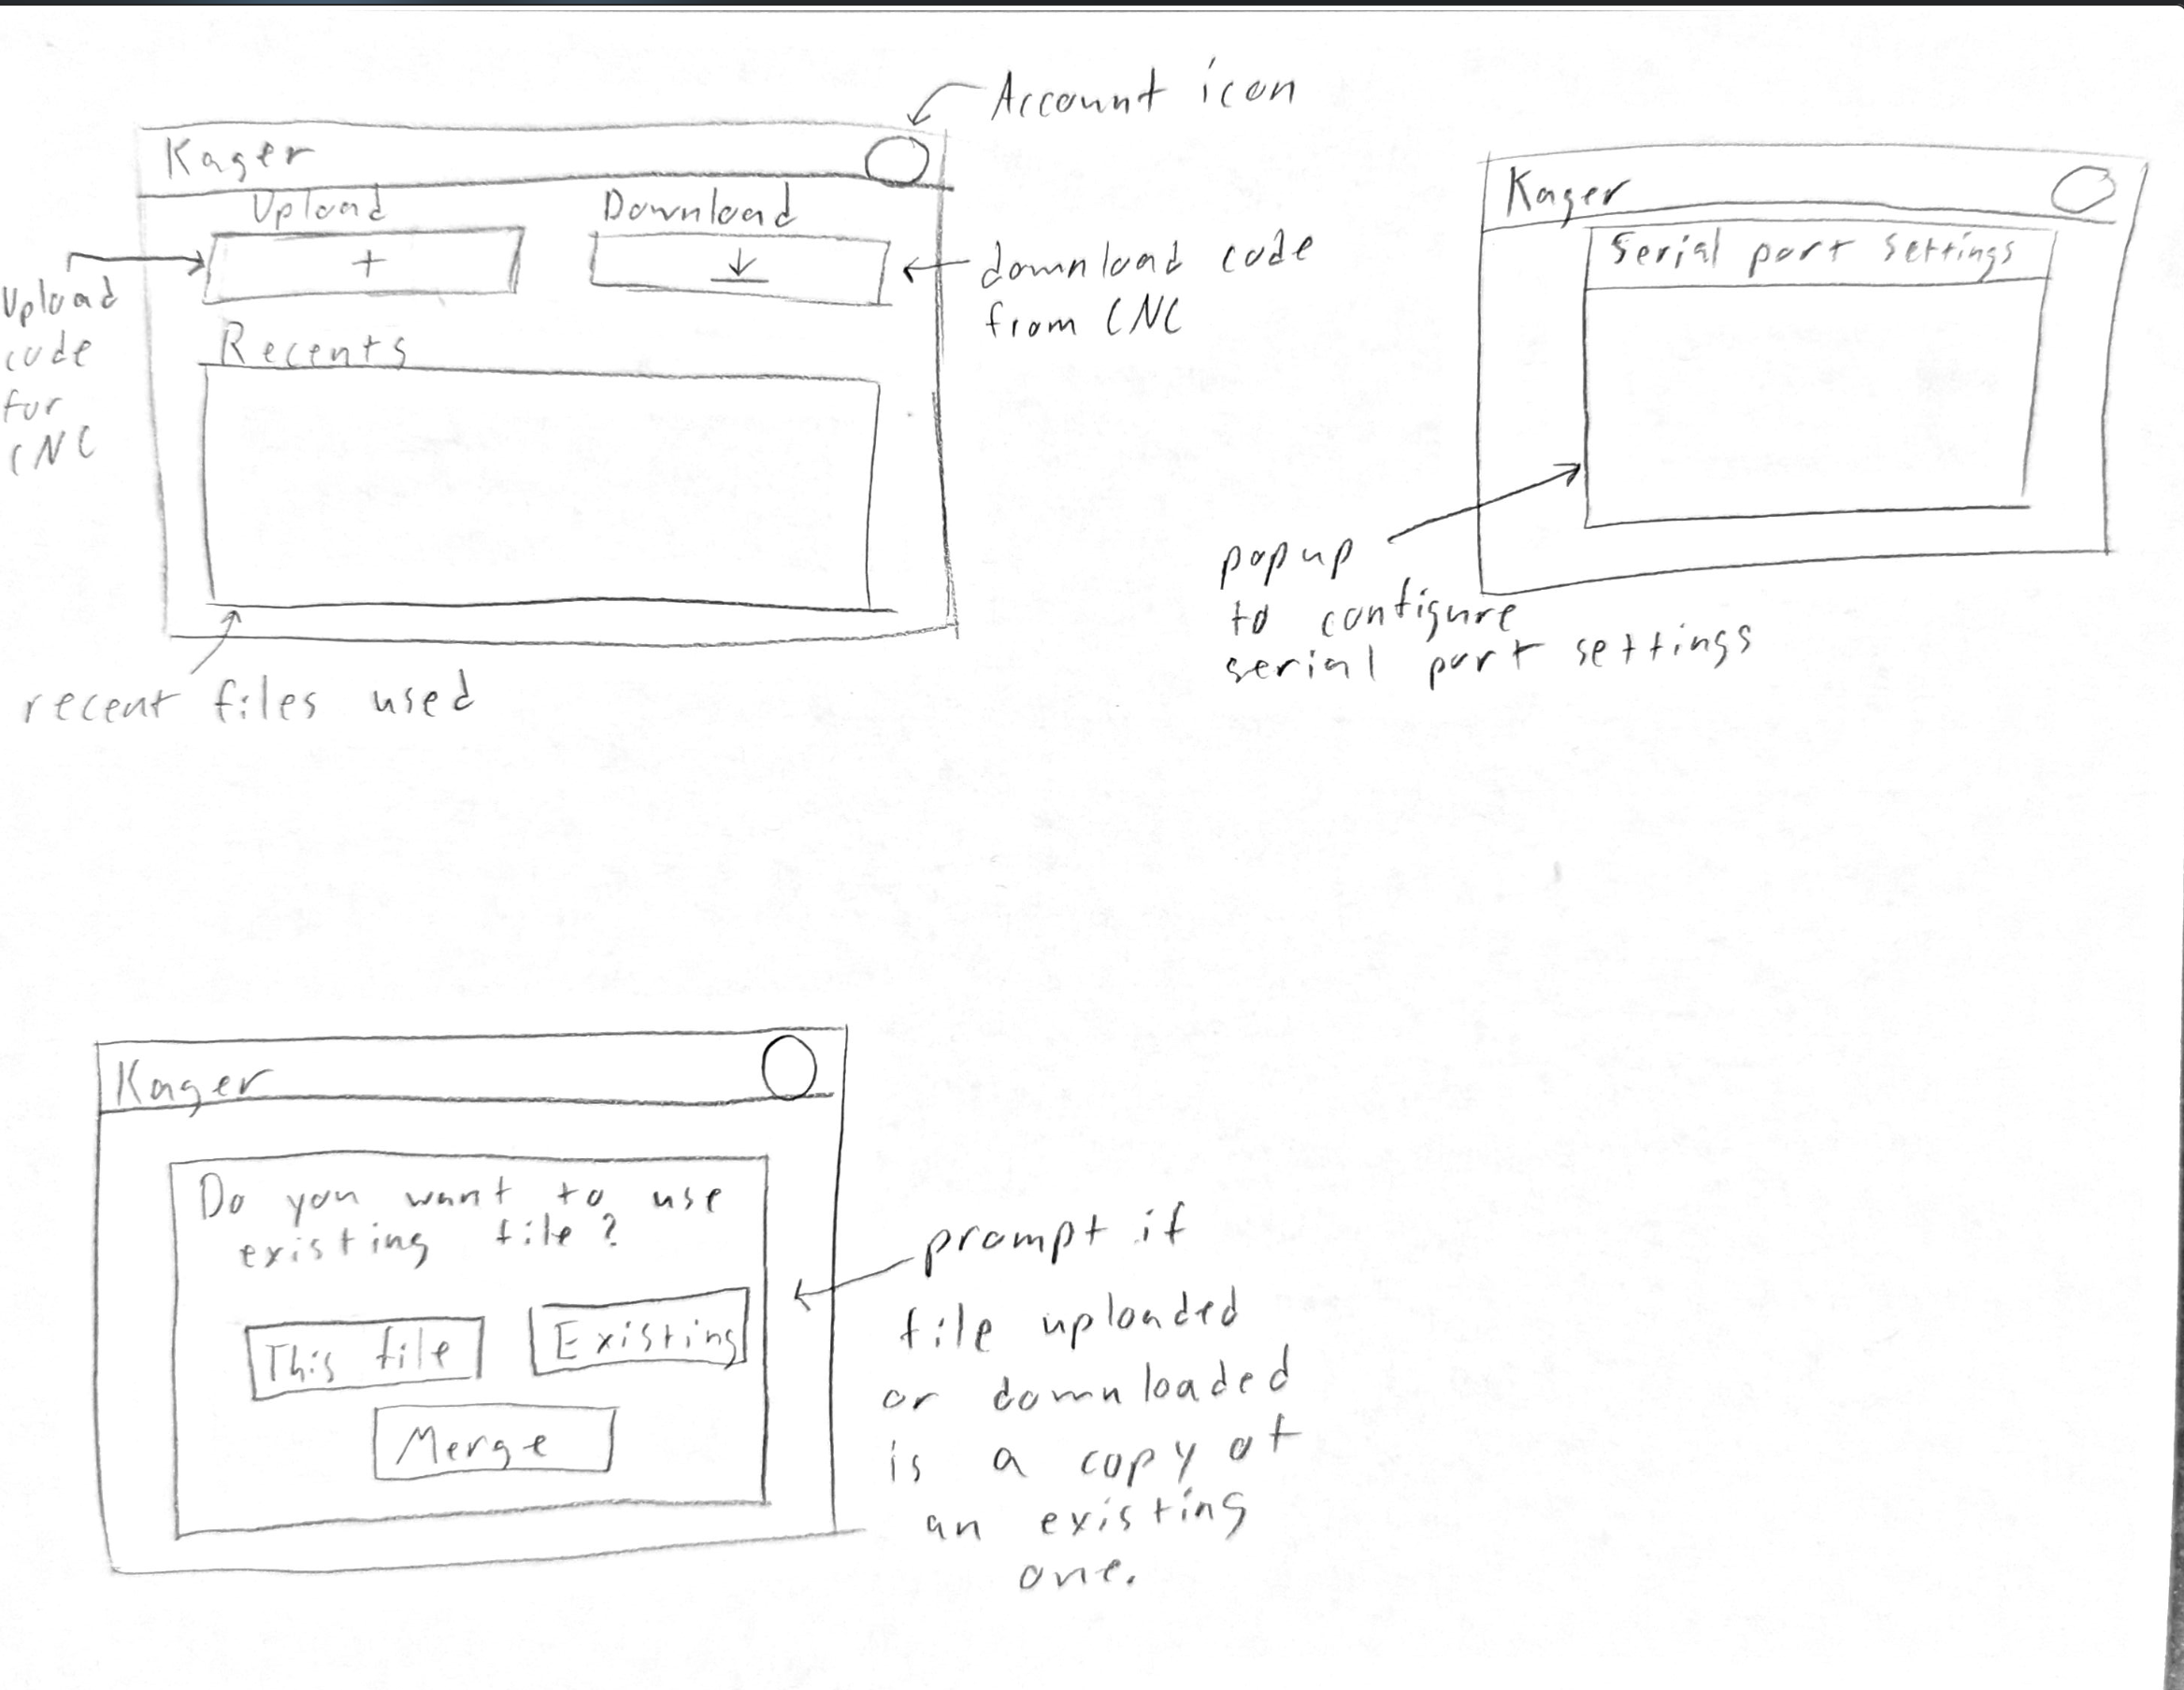 Account icon
Kager
Upload
Download
+
Upload
code
for
CNC
download code
from CNC
Recents
recent files used
Kager
Serial port settings
popup
to configure
serial port settings
Kager
Do you want to use
existing file?
This file
Existing
Merge
prompt if
file uploaded
or downloaded
is a copy of
an existing
one.